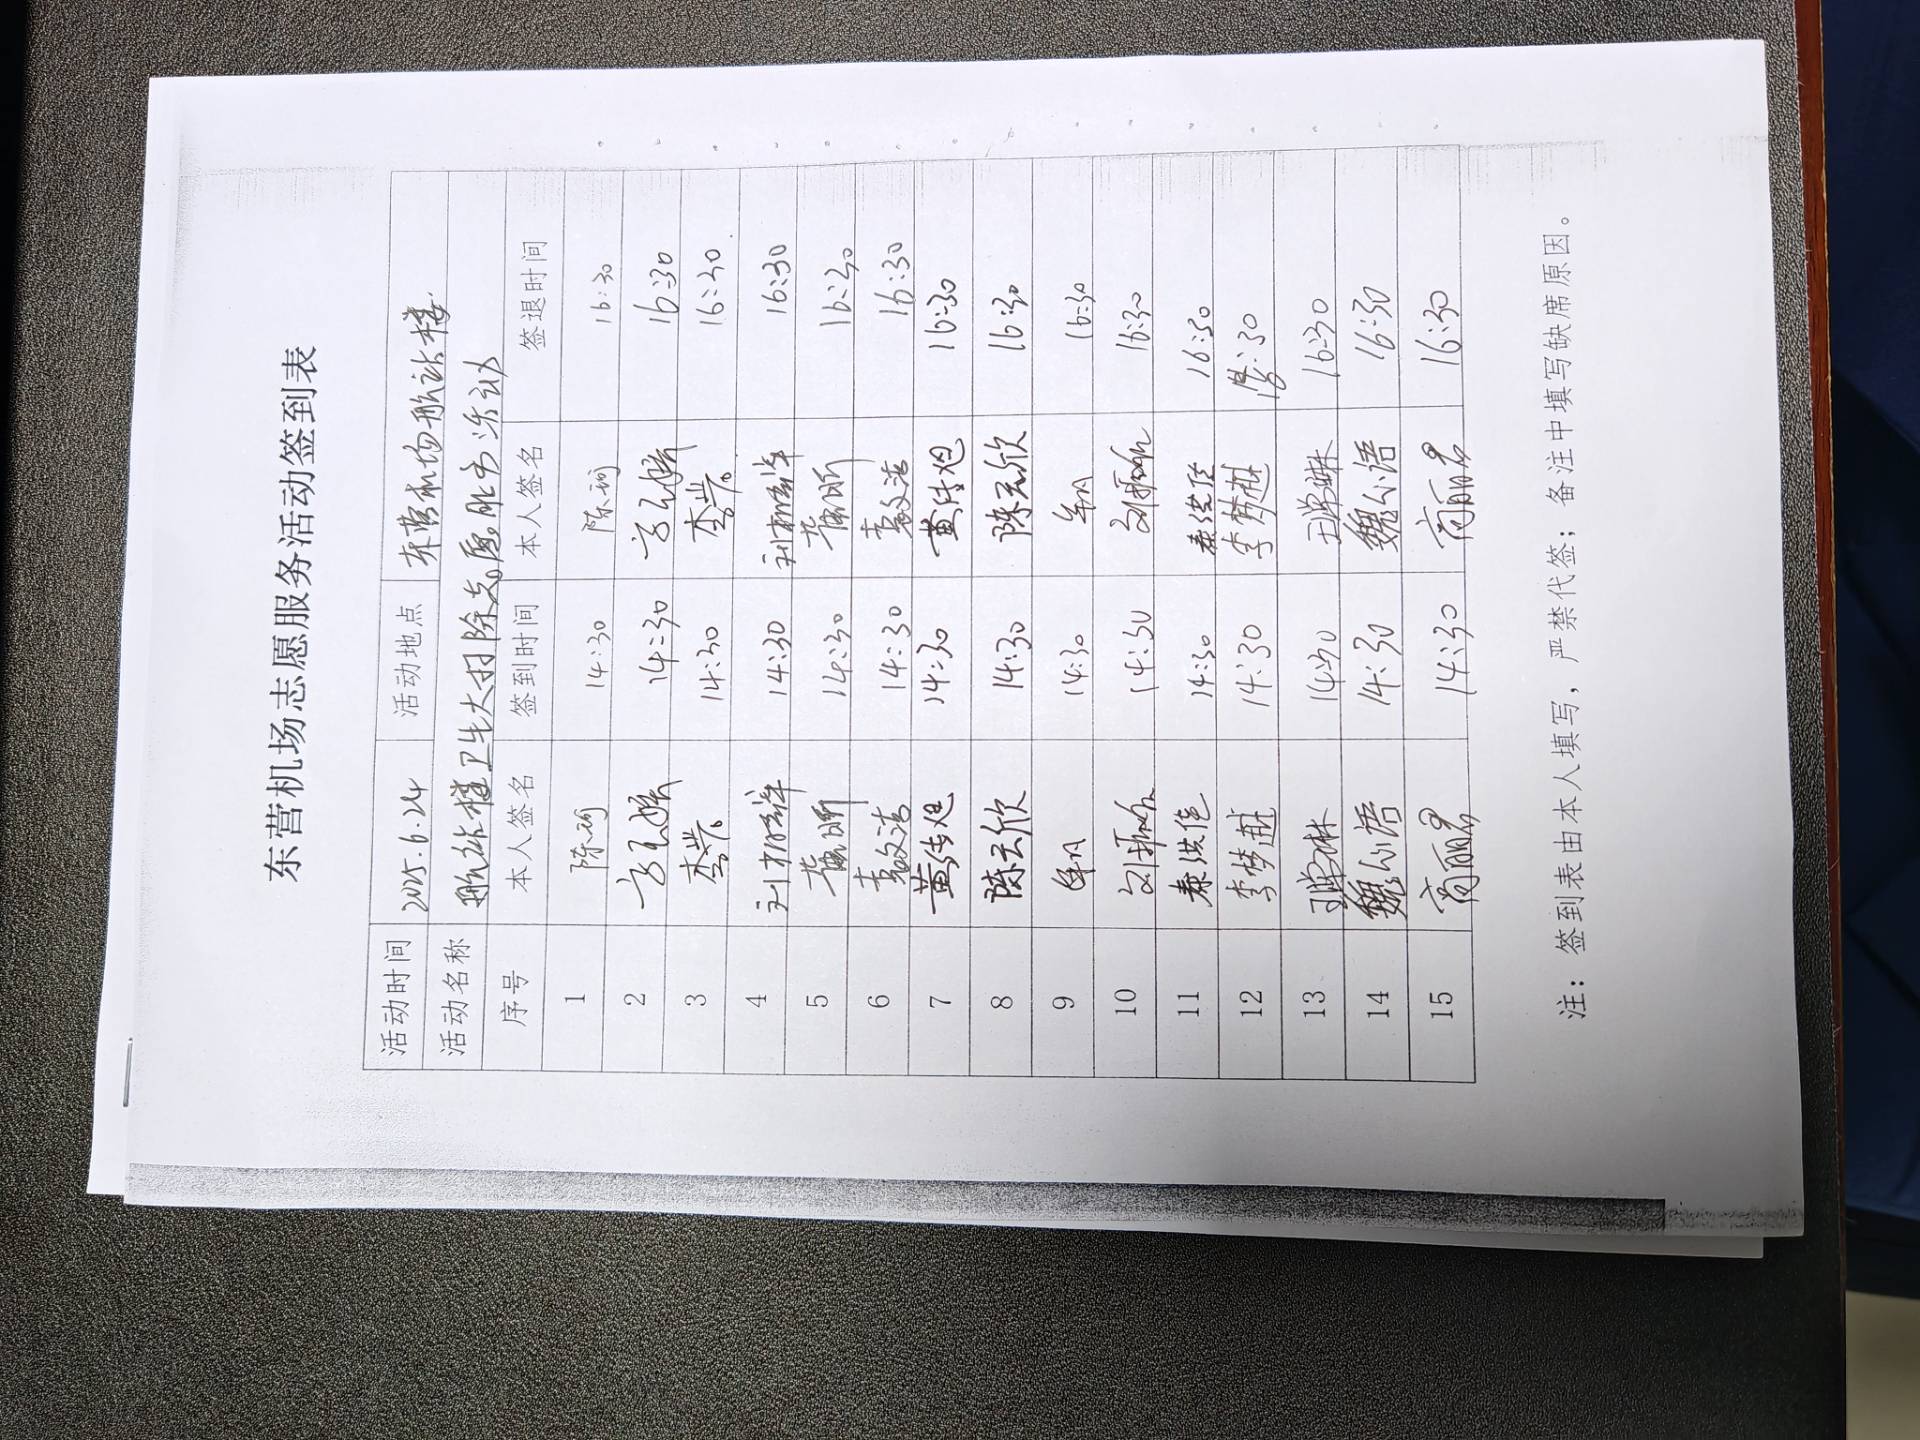 东营机场志愿服务活动签到表
活动时间 2025.6.24 活动地点 东营机场航站楼
活动名称 航站楼卫生大扫除志愿服务活动
序号 本人签名 签到时间 本人签名 签退时间
1 陈珂 14:30 陈珂 16:30
2 14:30 16:30
3 14:30 16:30
4 14:30 16:30
5 黄昕 14:30 黄昕 16:30
6 袁文洁 14:30 袁文洁 16:30
7 14:30 16:30
8 陈云欣 14:30 陈云欣 16:30
9 14:30 16:30
10 14:30 16:30
11 秦洪佺 14:30 秦洪佺 16:30
12 李梦越 14:30 李梦越 16:30
13 14:30 16:30
14 魏心语 14:30 魏心语 16:30
15 商丽君 14:30 商丽君 16:30
注：签到表由本人填写，严禁代签；备注中填写缺席原因。